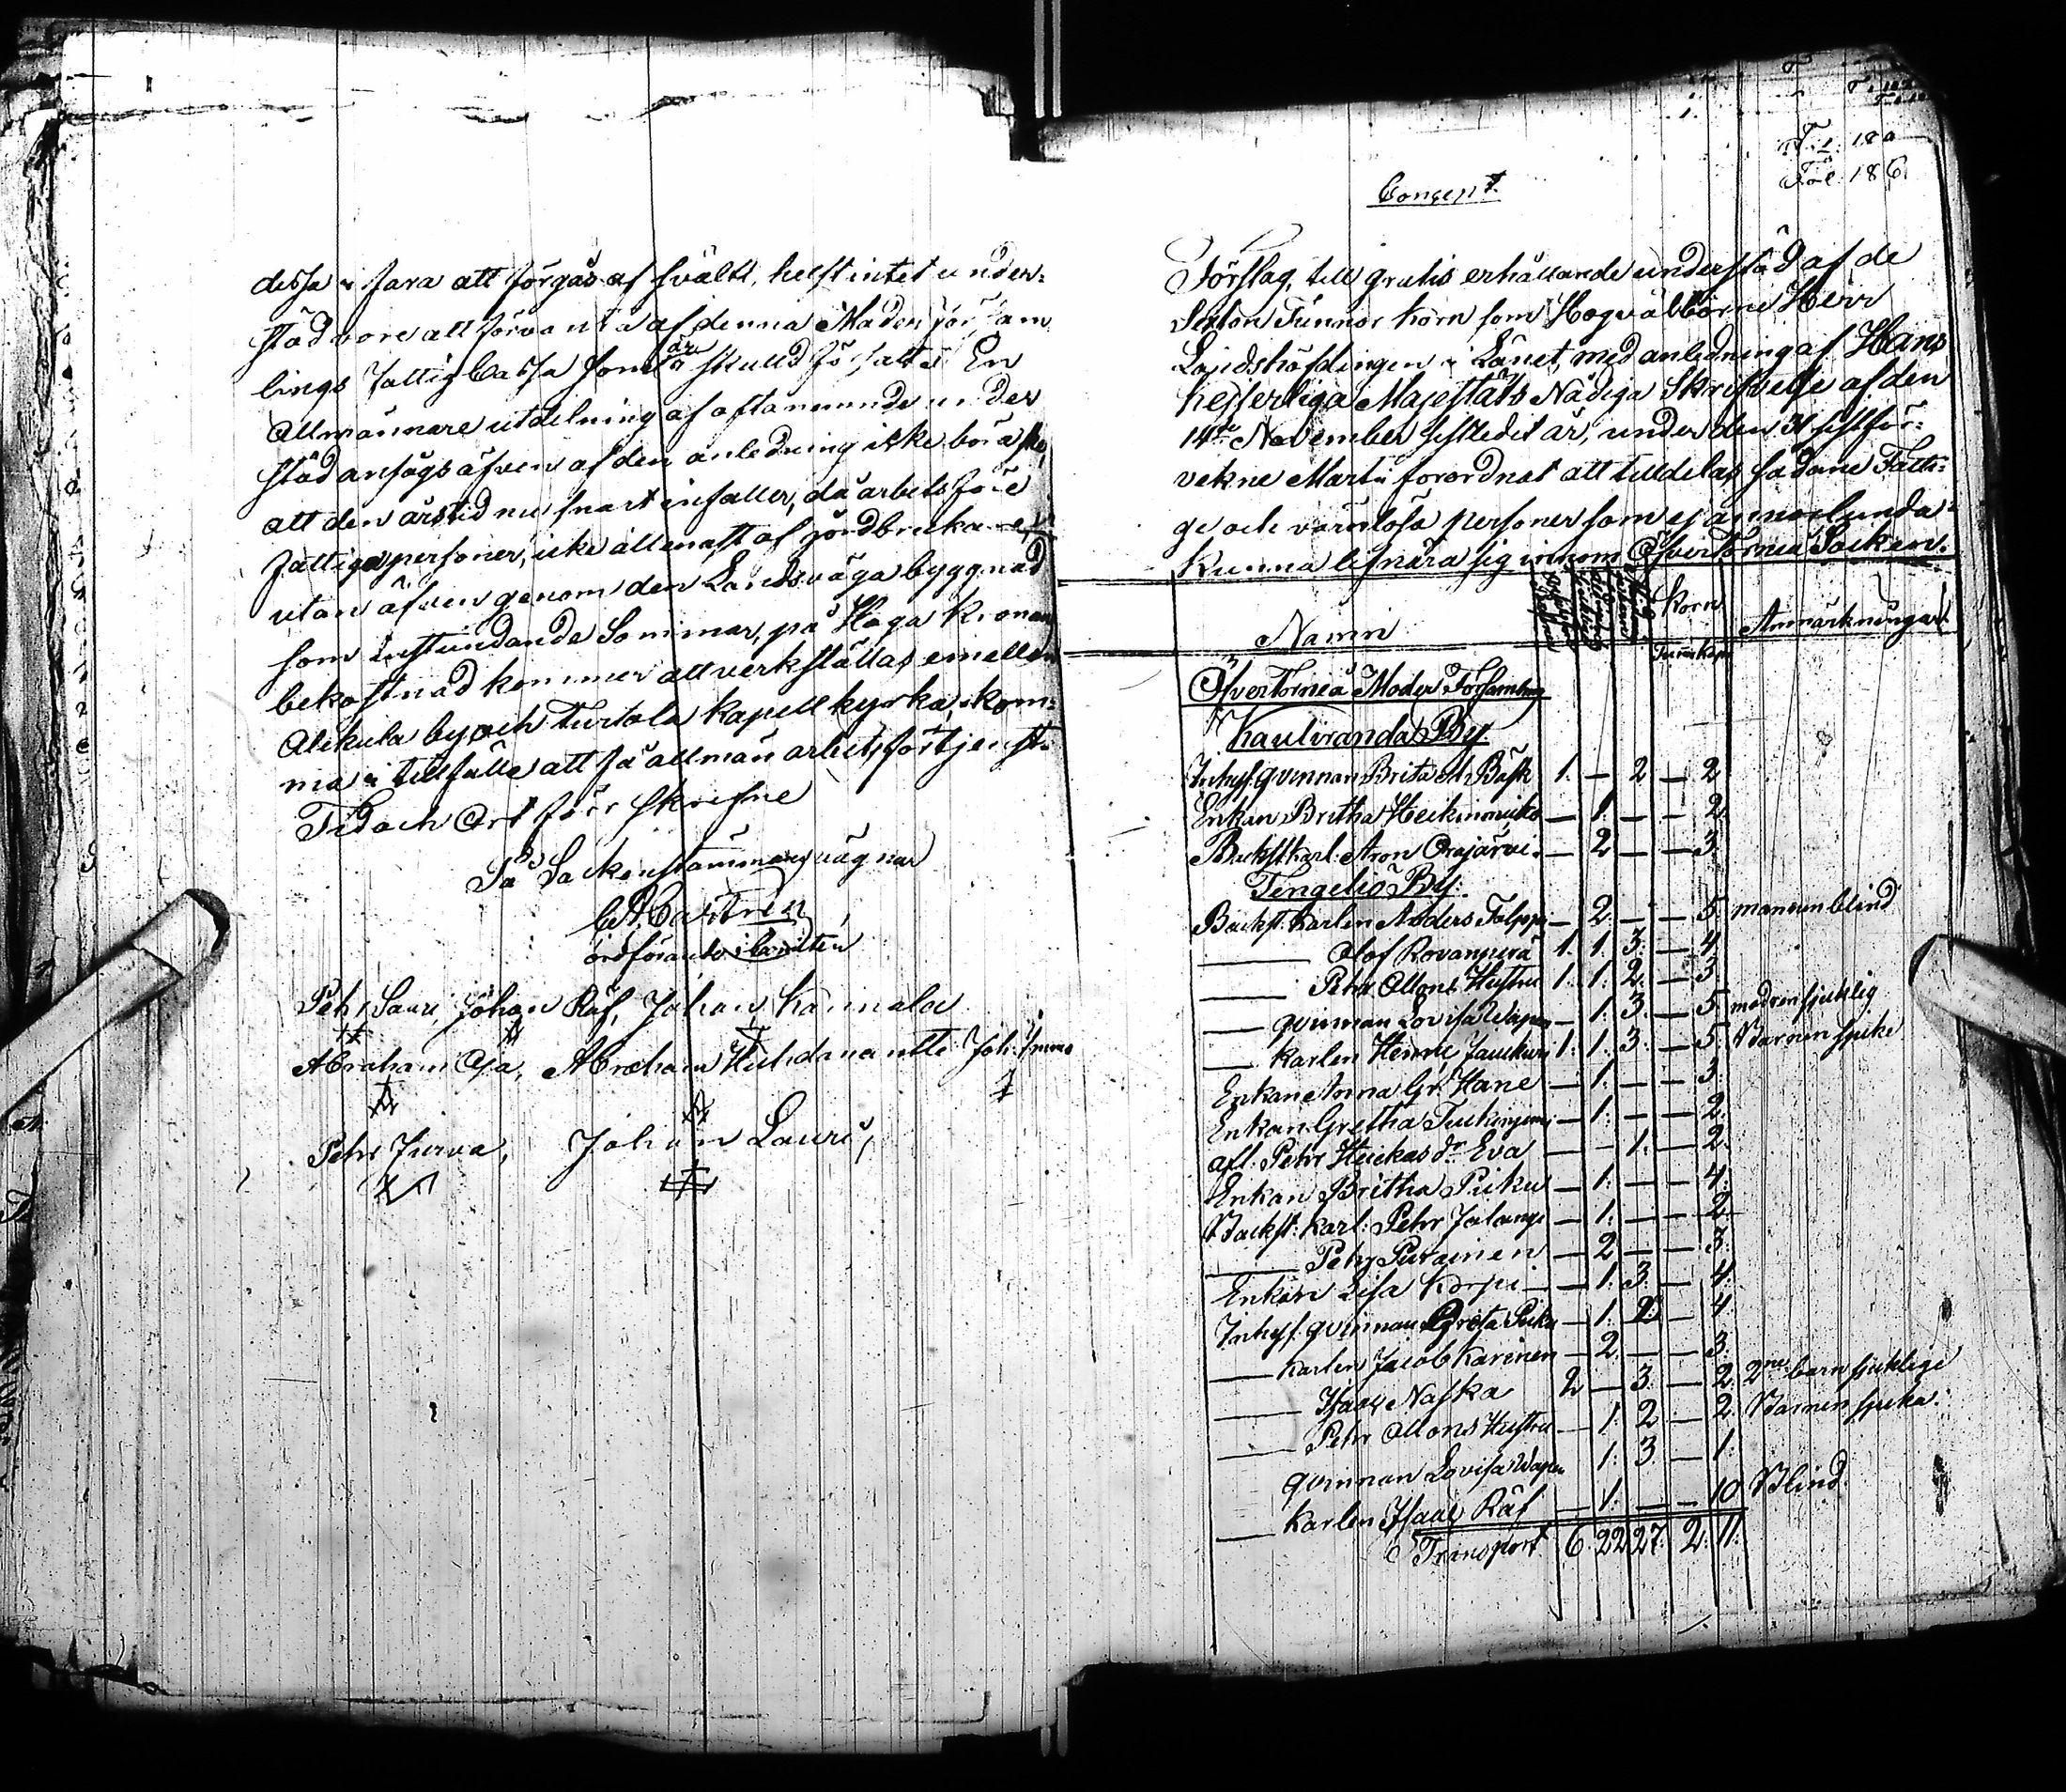 dessa i fara att förgås af svält, helst intet under-
stöd vore att förvänta af denna Moderförsam
lings Fattig Cassa som är skulld försatt. En
Allmännare utdelning af oftanemnde under
stöd ansågs äfven af den anledning icke böra ske,
att den årstid nu snart infaller, då arbetsföre
fattiga personer, icke allenast af jordbrukare,
utan äfven genom den Landsväga byggnad
som instundande Sommar, på Höga Kronans
bekostnad kommer att verkställas emellan
Alckula by och Turtola Kapell kyrka, kom-
ma i tillfälle att få allmän arbetsförtjenst.
Tid och Ort förr skrifne
På Sockenstämmans vägnar
Castrén
ordförande i
Pehr Lauri, Johan Räf, Johan Kannala
Abraham Oja, Abraham Huhdanantti Joh:
Pehr Jurva, Johan Lauri,
Concept.
Förslag, till gratis erhållande understöd af de
Sexton Tunnor korn som Högvälborne Herr
Landshöfdingen i Länet, med anledning af Hans
Kejserliga Majestäts Nådiga Skrifvelse af den
14de November sistledit år, under den 31 sistför-
vekne Martii förordnat att tilldelas sådane Fatti-
ge och värnlösa personer som ej annorlunda
kunna lifnära sig innom Öfvertorneå Socken.
Namn Korn Anmärkningar
Tunn Kapp
Öfvertorneå Moder Församling
Kauliranda By.
Inhys. qvinnan Brita M. Bask 1. — 2 — 2
Enkan Britha — 1. — — 2.
Backst. Karl. Aron Orajärvi — 2 — — 3
Tengeliö By:
Backst. Karlen Anders — 2. — — 5 mannen blind
— Olof Rovanperä 1. 1. 3. — 4
— Pehr Ollons Hustru 1. 1. 2. — 3
— qvinnan Lovisa — 1. 3. — 5 modren sjuklig
— Karlen Henric 1. 1. 3. — 5. Barnen sjuke
Enkan Anna Gr. Hane — 1. — — 3.
Enkan Gretha — 1. — — 2.
afl. Pehr Heickas dr Eva — — 1. — 2.
Enkan Britha — 1. — — 4.
Backst: Karl: Pehr — 1. — — 2.
— Pehr — 2 — — 3.
Enkan Lisa Korpi — 1. 3. — 4.
Inhys. qvinnan Greta — 1. 2 — 4
— Karlen Jacob Karinen — 2. — — 3.
— Isaac Naska 2 — 3. — 2. 2ne barn sjuklige
— Pehr Ollons Hustru — 1. 2 — 2 Barnen sjuka.
qvinnan Lovisa 1. 3. — 1.
— Karlen Isaac Räf — 1. — — 10 Blind.
Transport 6. 22 27. 2. 11.